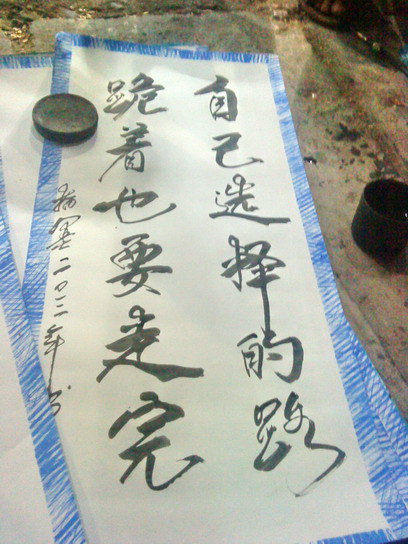 自己选择的路
跪着也要走完
二〇一三年书